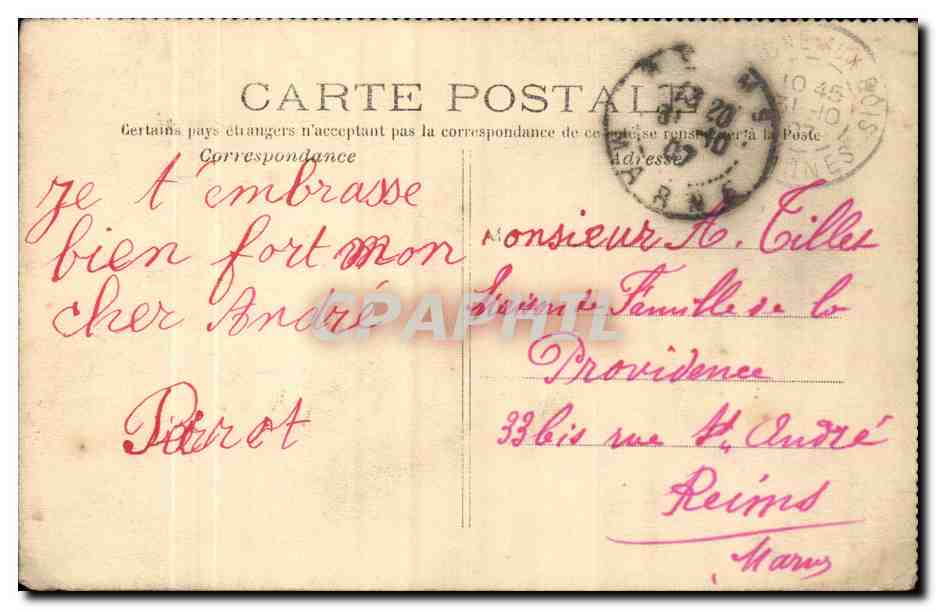 CARTE POSTALE
Certains pays étrangers n'acceptant pas la correspondance de ce côté, se renseigner à la Poste
Correspondance
Adresse
Je t'embrasse
bien fort mon
cher André
Pierrot
Monsieur A. Tillet
Famille de la
Providence
33 bis rue St. André
Reims
Marne
MARNE
BOIS
10 45
31-10
CPAPHIL